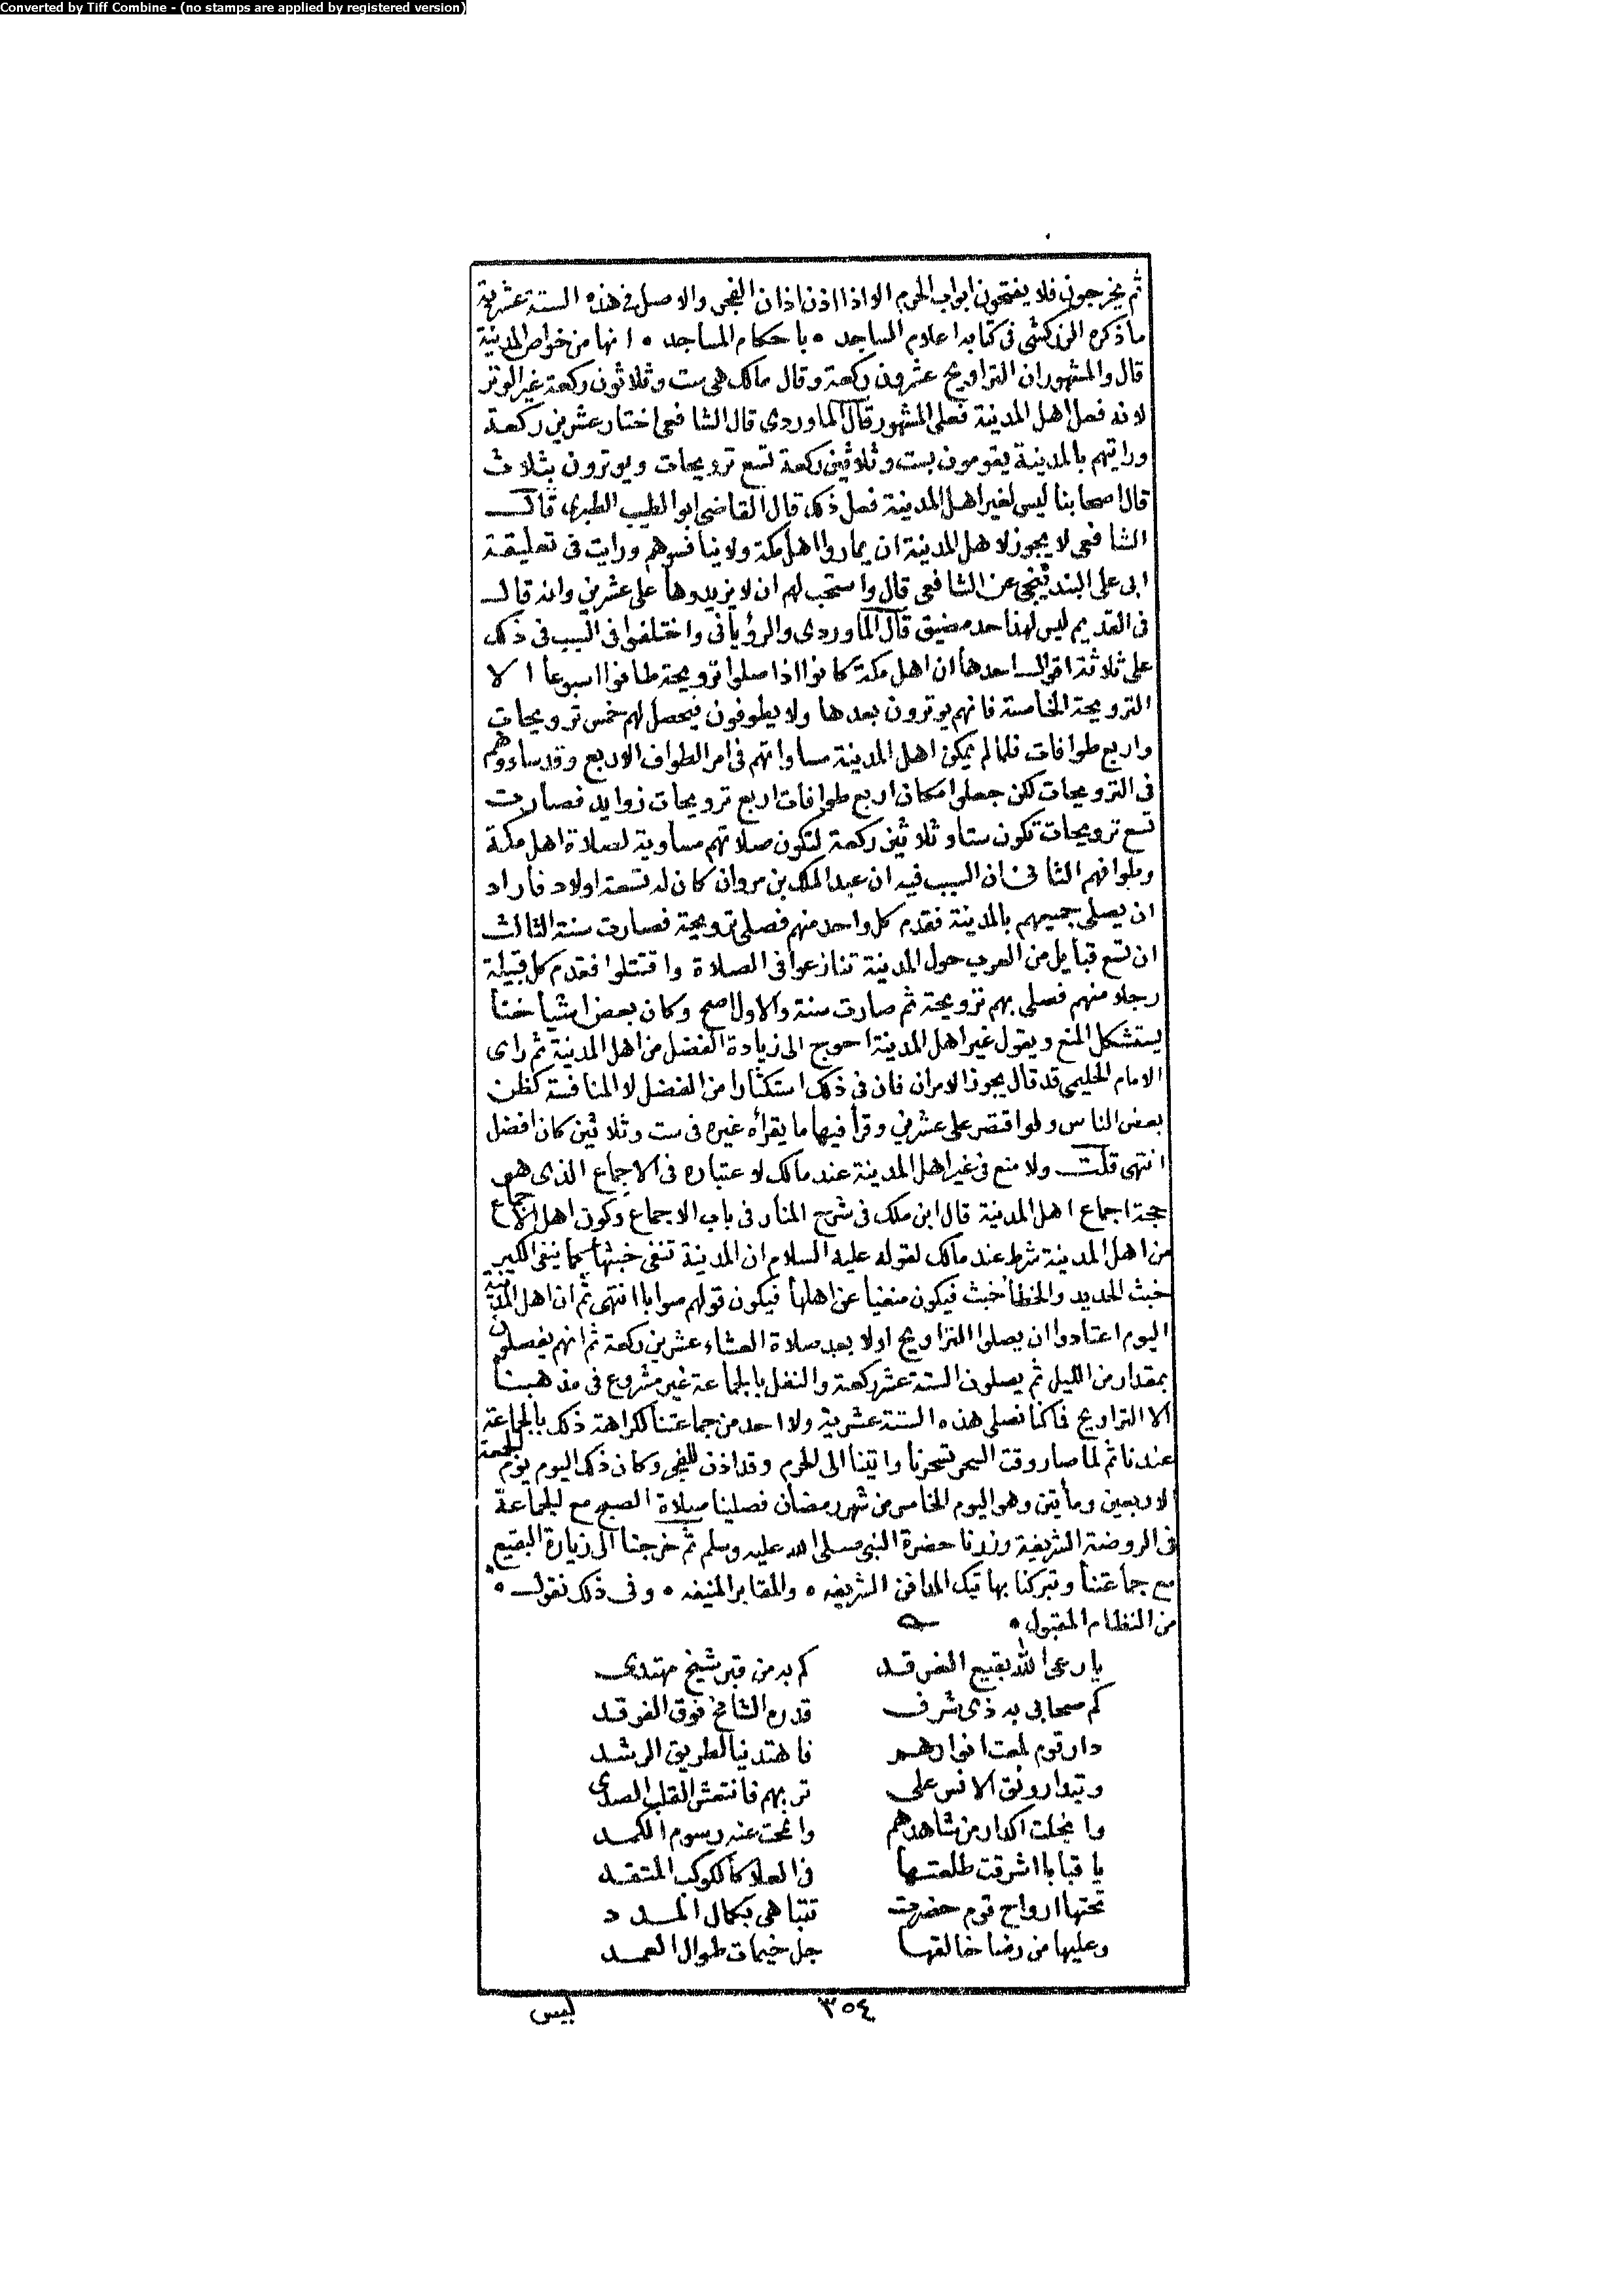 Converted by Tiff Combine - (no stamps are applied by registered version)
ثم يخرجون فلا يفتحون ابواب الحرم الا اذا اذن اذان الفجر والاصل في هذه الستة عشرية
ما ذكره الزركشي في كتابه اعلام الساجد ٠ باحكام المساجد ٠ انها من خواص المدينة
قال والمشهور ان التراويح عشرون ركعة وقال مالك هي ست وثلاثون ركعة غير الوتر
لانه فعل اهل المدينة فعلى المشهور قال الماوردي قال الشافعي اختار عشرين ركعة
ورايتهم بالمدينة يقومون بست وثلاثين ركعة تسع ترويحات ويوترون بثلاث
قال اصحابنا ليس لغير اهل المدينة فعل ذلك قال القاضي ابو الطيب الطبري قال
الشافعي لا يجوز لاهل المدينة ان يماروا اهل مكة ولا ينافسوهم ورايت في تعليقة
ابي علي البندنيجي عن الشافعي قال واستحب لهم ان لا يزيدوها على عشرين وانه قال
في القديم ليس لهذا حد مضيق قال الماوردي والرؤياني واختلفوا في السبب في ذلك
على ثلاثة اقوال احدها ان اهل مكة كانوا اذا صلوا ترويحة طافوا اسبوعا الا
الترويحة الخامسة فانهم يوترون بعدها ولا يطوفون فيحصل لهم خمس ترويحات
واربع طوافات فلما لم يمكن اهل المدينة مساواتهم في امر الطواف الاربع وقد ساووهم
في الترويحات لكن جعلوا مكان اربع طوافات اربع ترويحات زوايد فصارت
تسع ترويحات تكون ستا وثلاثين ركعة لتكون صلاتهم مساوية لصلاة اهل مكة
وطوافهم الثاني ان السبب فيه ان عبد الملك بن مروان كان له تسعة اولاد فاراد
ان يصلي جميعهم بالمدينة فقدم كل واحد منهم فصلى ترويحة فصارت سنة الثالث
ان تسع قبايل من العرب حول المدينة تنازعوا في الصلاة واقتتلوا فقدم كل قبيلة
رجلا منهم فصلى بهم ترويحة ثم صارت سنة والاول اصح وكان بعض اشياخنا
يستشكل المنع ويقول غير اهل المدينة احوج الى زيادة الفضل من اهل المدينة ثم راى
الامام الحليمي قد قال يجوز الامران فان في ذلك استكثارا من الفضل لا المنافسة كظن
بعض الناس ولو اقتصر على عشرين وقرأ فيها ما يقرأه غيره في ست وثلاثين كان افضل
انتهى قلت ولا منع في غير اهل المدينة عند مالك لاعتباره في الاجماع الذي هو
حجة اجماع اهل المدينة قال ابن ملك في شرح المنار في باب الاجماع وكون اهل الاجماع
من اهل المدينة شرط عند مالك لقوله عليه السلام ان المدينة تنفي خبثها كما ينفي الكير
خبث الحديد والخطأ خبث فيكون منفيا عن اهلها فيكون قولهم صوابا انتهى ثم ان اهل المدينة
اليوم اعتادوا ان يصلوا التراويح اولا بعد صلاة العشاء عشرين ركعة ثم انهم يفصلون
بمقدار من الليل ثم يصلون الستة عشر ركعة والنفل بالجماعة غير مشروع في مذهبنا
الا التراويح فما كنا نصلي هذه الستة عشرية ولا احد من جماعتنا لكراهة ذلك بالجماعة
عندنا ثم لما صار وقت السحر تسحرنا واتينا الى الحرم وقد اذن للفجر وكان ذلك اليوم يوم الجمعة
الاربعين ومأتين وهو اليوم الخامس من شهر رمضان فصلينا صلاة الصبح مع الجماعة
في الروضة الشريفة وزرنا حضرة النبي صلى الله عليه وسلم ثم خرجنا الى زيارة البقيع
مع جماعتنا وتبركنا بهاتيك المدافن الشريفه ٠ والمقابر المنيفه ٠ وفي ذلك نقول ٠
من النظام المقبول ٠
يا رعى الله بقيع الغرقد كم به من قبر شيخ مهتدى
كم صحابي به ذي شرف قدره الشامخ فوق الفرقد
دار قوم لمعت انوارهم فاهتدينا لطريق الرشد
وتبدا رونق الانس على تربهم فانتعش القلب الصدي
وانجلت اكدار من شاهدهم وانمحت عنه رسوم الكمد
يا قبابا اشرقت طلعتها في العلا كالكوكب المتقد
تحتها ارواح قوم حضرت تتباهى بكمال المدد
وعليها من رضا خالقها جل خيمات طوال العمد
٣٥٤
ليس